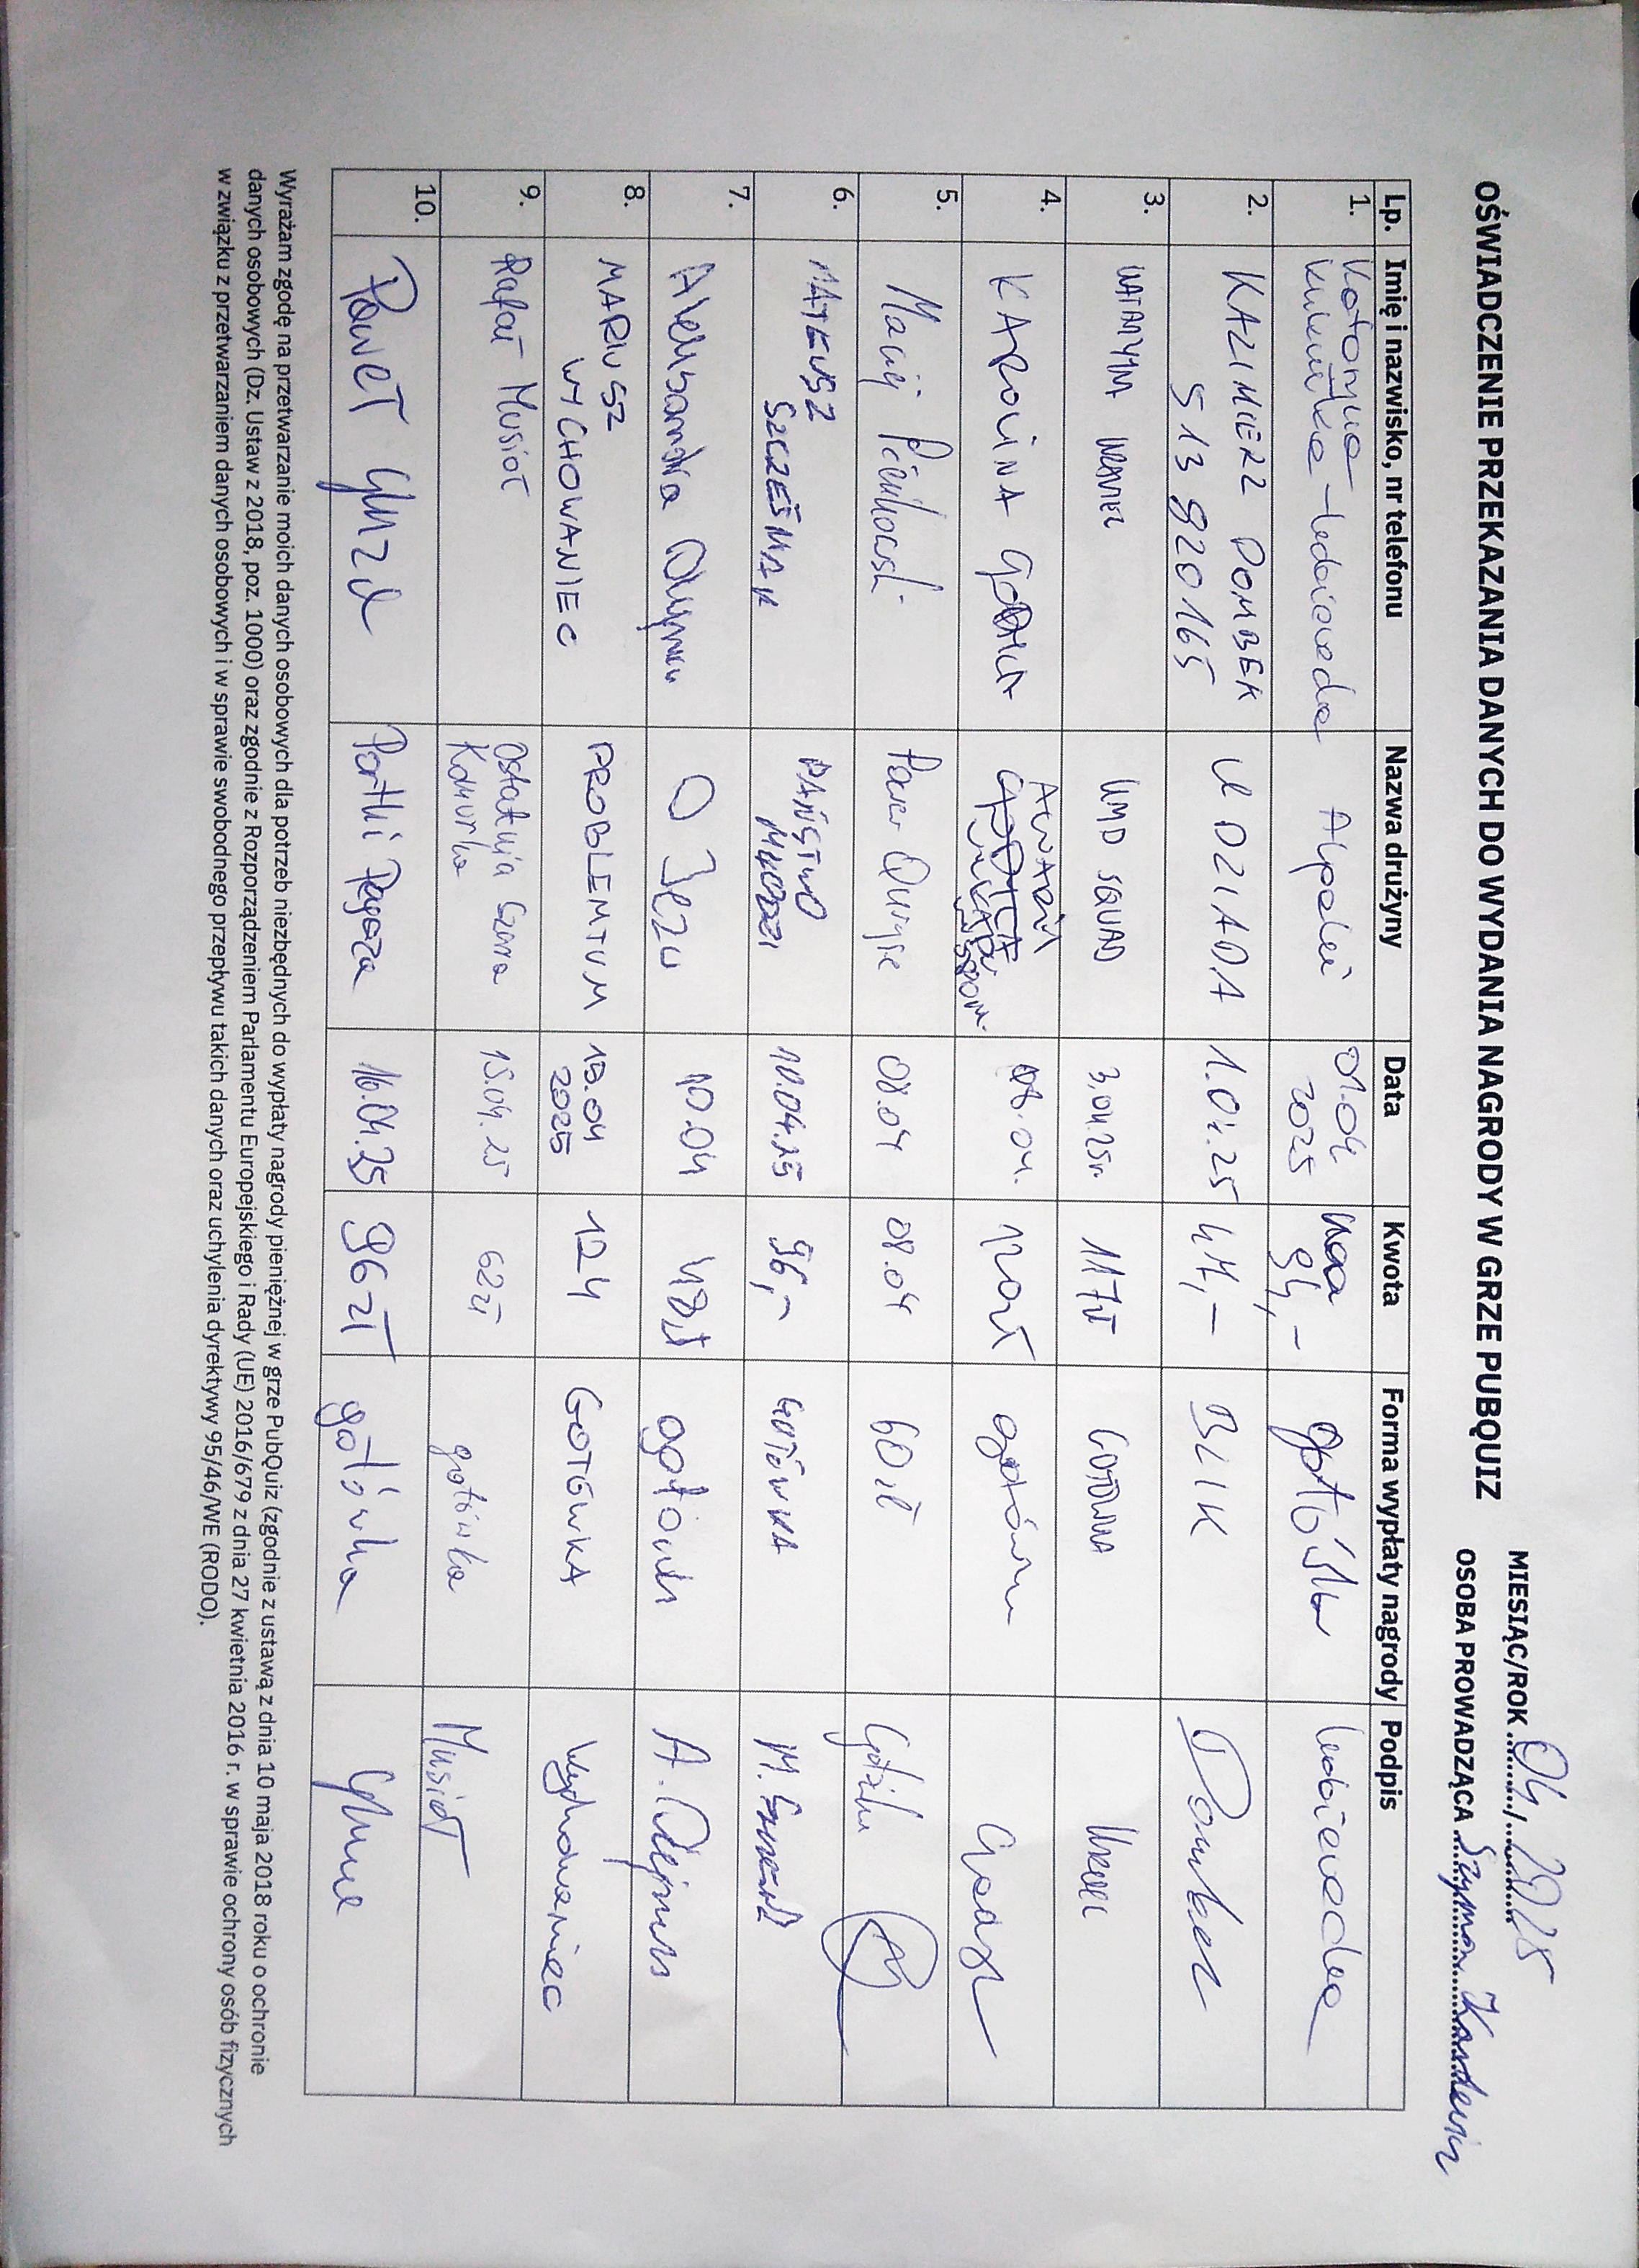 OŚWIADCZENIE PRZEKAZANIA DANYCH DO WYDANIA NAGRODY W GRZE PUBQUIZ
MIESIĄC/ROK 04 / 2025
OSOBA PROWADZĄCA Szymon
Lp. Imię i nazwisko, nr telefonu Nazwa drużyny Data Kwota Forma wypłaty nagrody Podpis
1. Katarzyna 01.04
2025 94,-
2. KAZIMIERZ DOMBEK U DZIADA 1.04.25 44,- BLIK Dombek
513 920 165
3. SQUAD 3.04.25r. 117zł GOTÓWKA
4. KAROLINA 08.04. 120zł
5. Maciej 08.04 08.04 60 zł
6. MATEUSZ PAŃSTWO 10.04.25 96,- GOTÓWKA
SZCZEŚNIAK
7. Aleksandra O Jezu 10.04 48zł
8. MARIUSZ PROBLEMTUM 15.04 124 GOTÓWKA Wychowaniec
WYCHOWANIEC 2025
9. Rafał Musioł Ostatnia Szara 15.04.25 62zł gotówka Musioł
Komórka
10. Paweł Portki Pegaza 16.04.25 96zł gotówka
Wyrażam zgodę na przetwarzanie moich danych osobowych dla potrzeb niezbędnych do wypłaty nagrody pieniężnej w grze PubQuiz (zgodnie z ustawą z dnia 10 maja 2018 roku o ochronie
danych osobowych (Dz. Ustaw z 2018, poz. 1000) oraz zgodnie z Rozporządzeniem Parlamentu Europejskiego i Rady (UE) 2016/679 z dnia 27 kwietnia 2016 r. w sprawie ochrony osób fizycznych
w związku z przetwarzaniem danych osobowych i w sprawie swobodnego przepływu takich danych oraz uchylenia dyrektywy 95/46/WE (RODO).